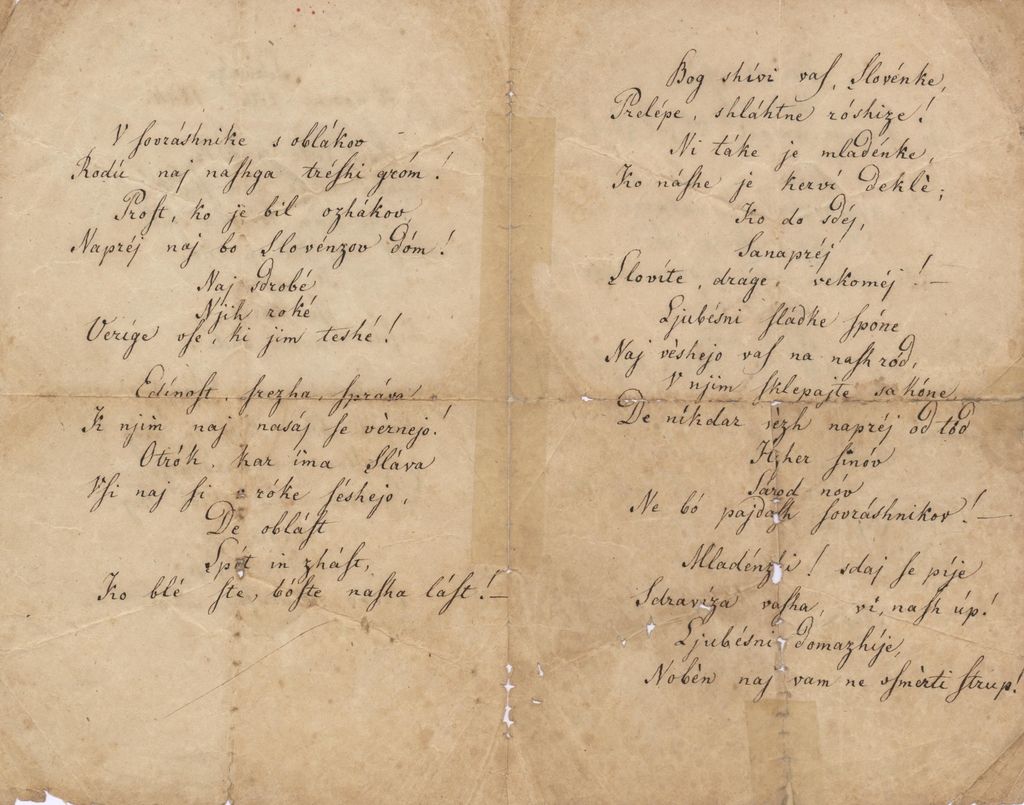 V ſovráshnike s oblákov
Rodú naj náſhga tréſhi gróm!
Proſt, ko je bil ozhákov,
Napréj naj bo Slovenzov dóm!
Naj sdrobé
Njih roké
Veríge vſe, ki jim teshé!
Edínoſt, ſrezha, ſpráva
K njim naj nasáj ſe vèrnejo!
Otrók, kar íma Sláva
Vſi naj ſi róke ſéshejo,
De obláſt
Spót in zháſt,
Ko blé ſte, bóſte naſha láſt!—
Bog shívi vaſ, Slovénke,
Prelépe, shláhtne róshize!
Ni táke je mladénke,
Ko náſhe je kerví deklè;
Ko do sdéj,
Sanapréj
Slovíte, dráge, vekoméj!—
Ljubésni ſládke ſpóne
Naj vèshejo vaſ na naſh ród,
V njim ſklepajte sakóne,
De nikdar vèzh napréj od tód
H zher ſinóv
Sárod nóv
Ne bó pajdaſh ſovráshnikov!—
Mladénzhi! sdaj ſe píje
Sdravíza vaſha, vi, naſh úp!
Ljubésni domazhíje,
Nobèn naj vam ne vſmèrti ſtrup!